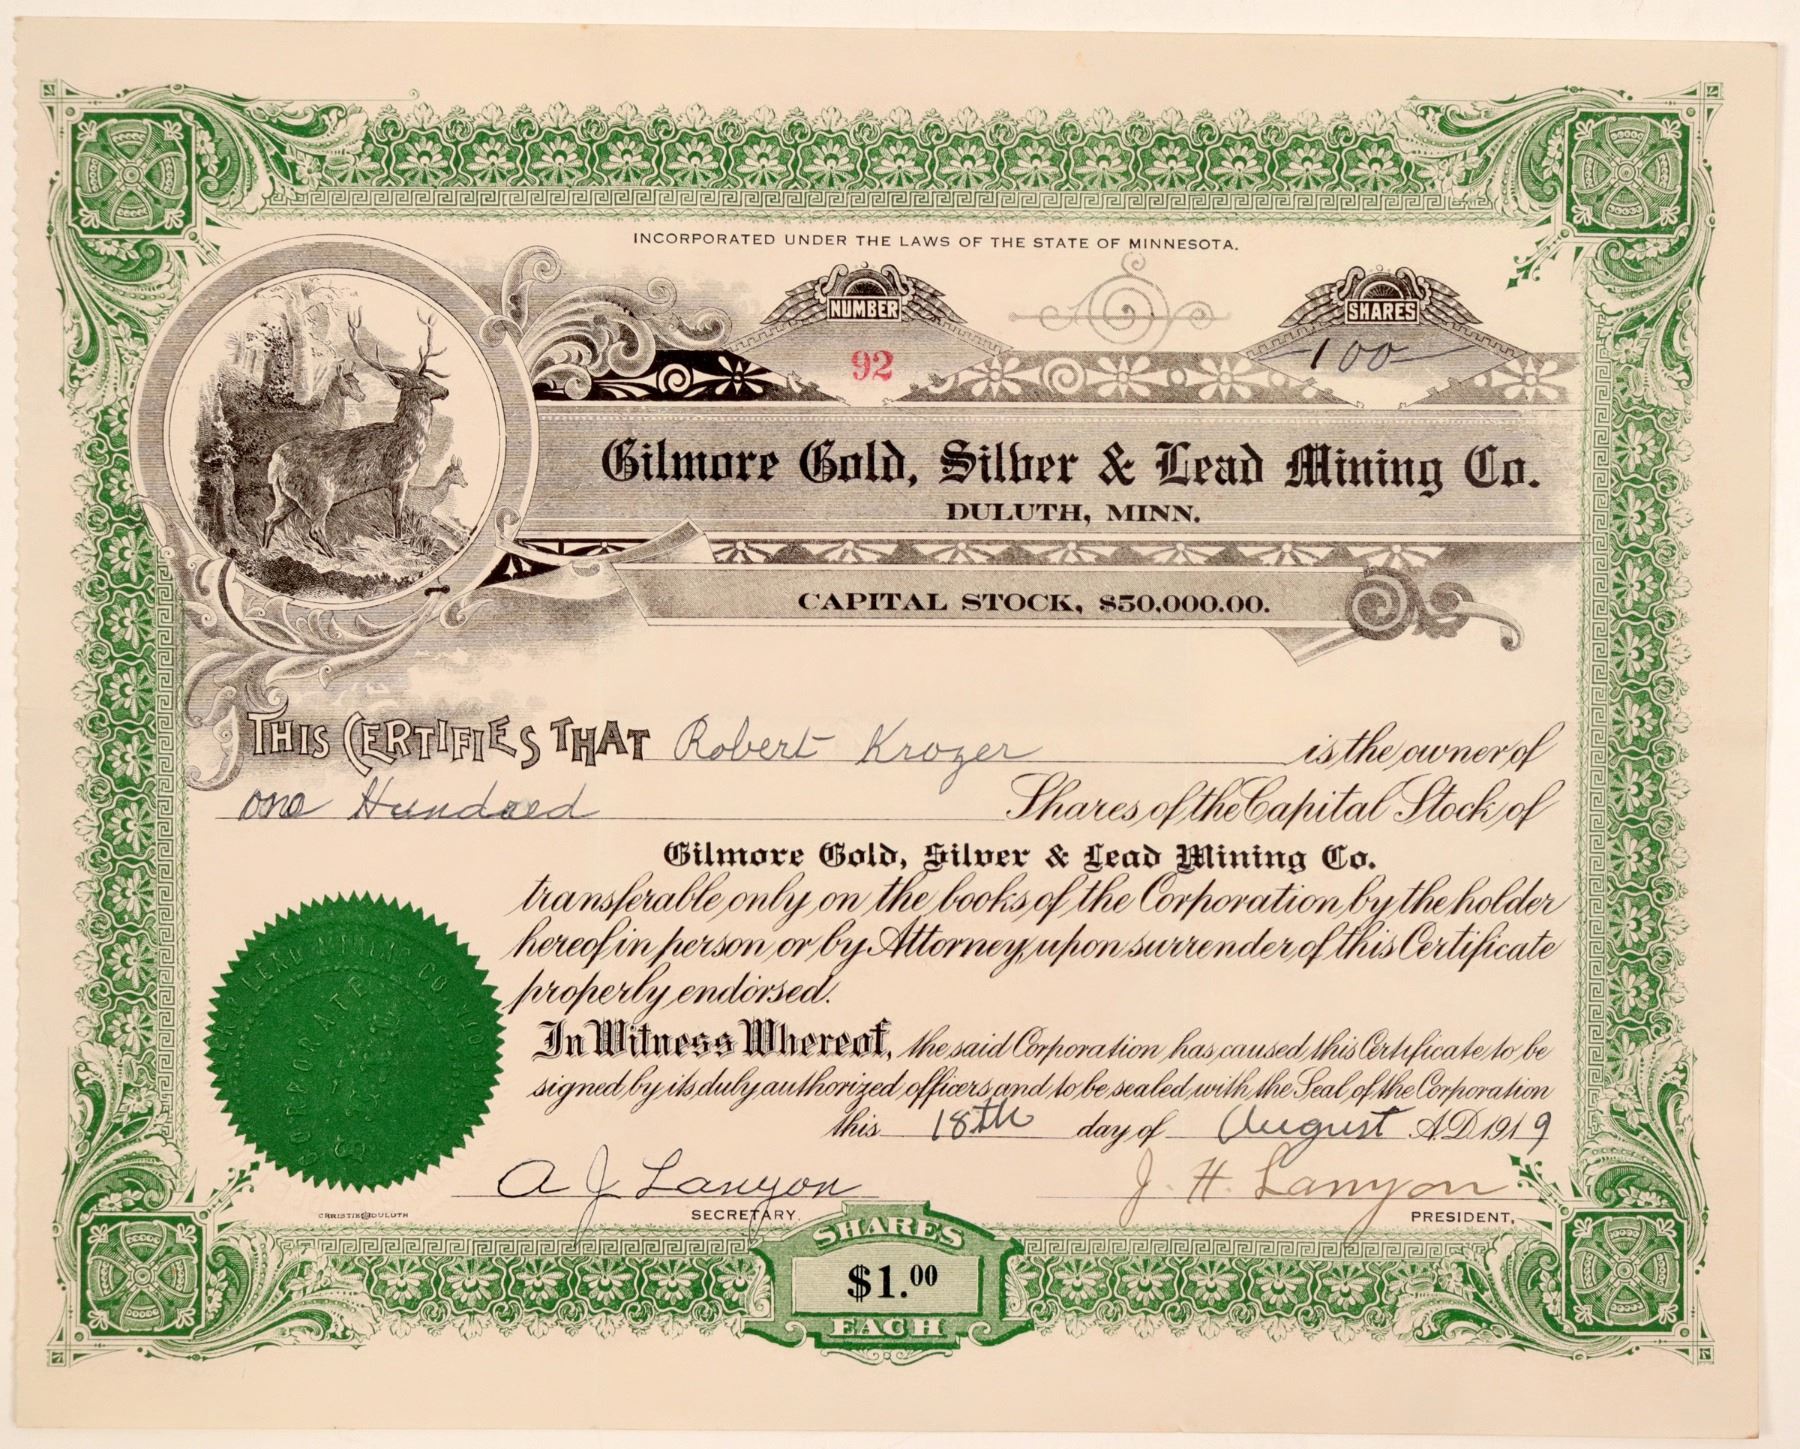 INCORPORATED UNDER THE LAWS OF THE STATE OF MINNESOTA.
NUMBER
SHARES
92
100
Gilmore Gold, Silver & Lead Mining Co.
DULUTH, MINN.
CAPITAL STOCK, $50,000.00.
THIS CERTIFIES THAT Robert Krozer is the owner of
one Hundred Shares of the Capital Stock of
Gilmore Gold, Silver & Lead Mining Co.
transferable only on the books of the Corporation by the holder
hereof in person or by Attorney, upon surrender of this Certificate
properly endorsed.
In Witness Whereof, the said Corporation has caused this Certificate to be
signed by its duly authorized officers and to be sealed with the Seal of the Corporation
this 18th day of August A.D. 1919
LEAD MINING CO
CORPORATE
A J Lanyon
J. H. Lanyon
CHRISTIE DULUTH
SECRETARY.
PRESIDENT.
SHARES
$1.00
EACH